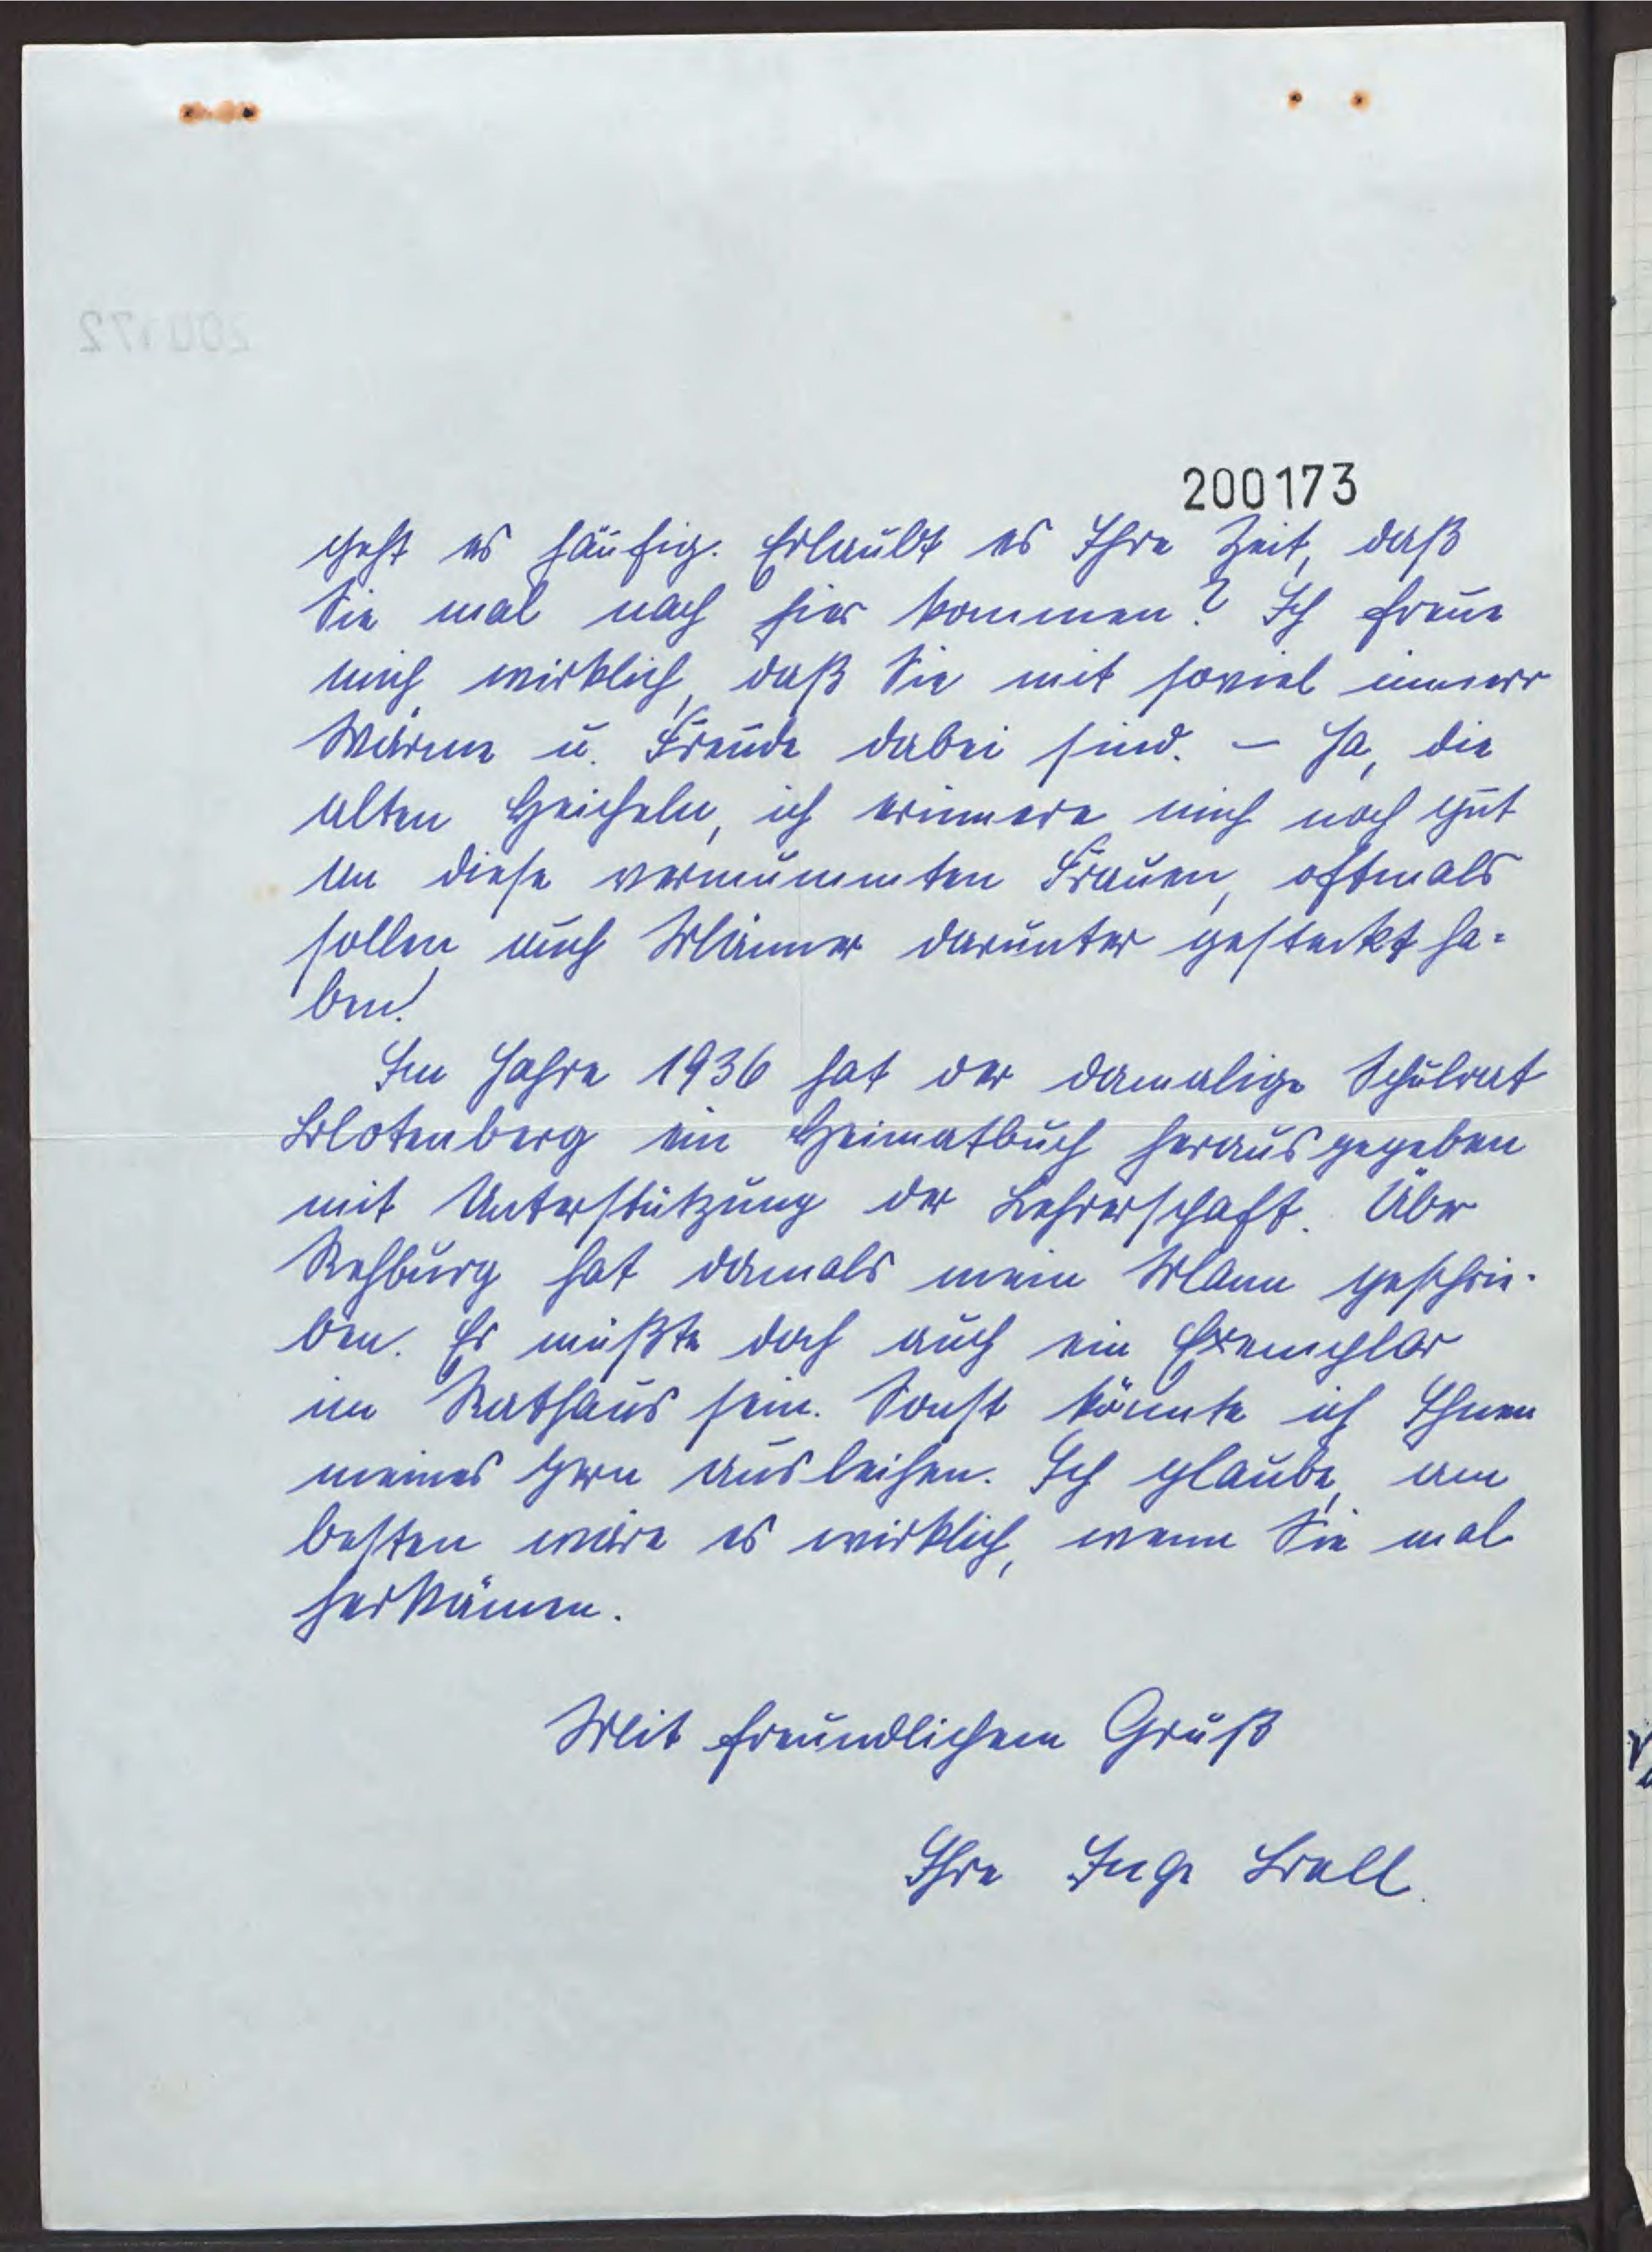 200173
geht es häufig. Erlaubt es Ihre Zeit, daß
Sie mal nach hier kommen? Ich freue
mich wirklich, daß Sie mit soviel innerer
Wärme u. Freude dabei sind. – Ja, die
alten Heicheln, ich erinnere mich noch gut
an diese vermummten Frauen, oftmals
sollen auch Männer darunter gesteckt ha=
ben!
Im Jahre 1936 hat der damalige Schulrat
Blotenberg ein Heimatbuch herausgegeben
mit Unterstützung der Lehrerschaft. Über
Rehburg hat damals mein Mann geschrie-
ben. Es müßte doch auch ein Exemplar
im Rathaus sein. Sonst könnte ich Ihnen
meines gern ausleihen. Ich glaube, am
besten wäre es wirklich, wenn Sie mal
herkämen.
Mit freundlichem Gruß
Ihre Inge